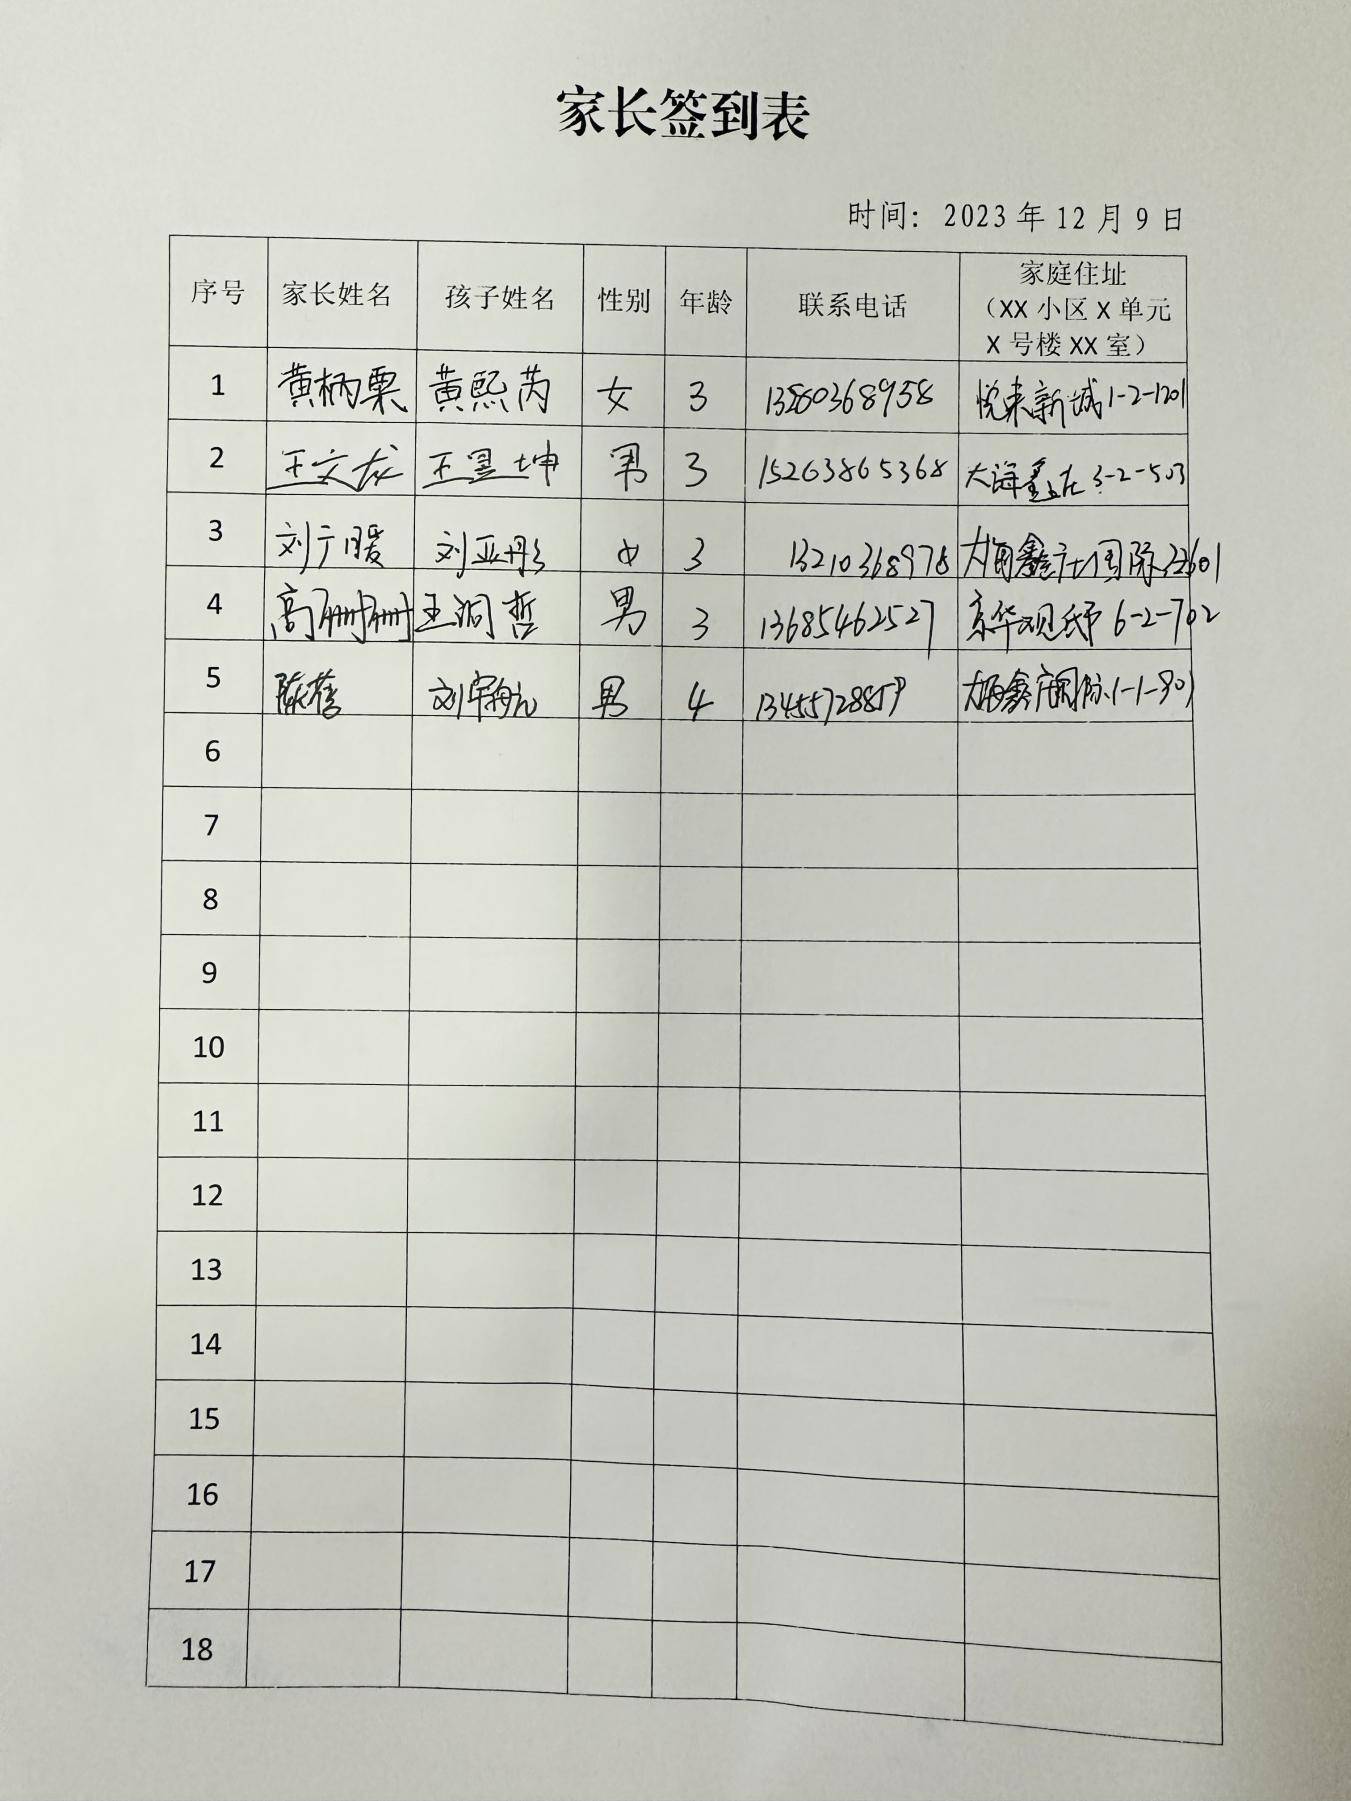 家长签到表
时间：2023年12月9日
序号 家长姓名 孩子姓名 性别 年龄 联系电话 家庭住址
（XX小区X单元
X号楼XX室）
1 黄柄栗 黄熙芮 女 3 13280368958 悦来新城1-2-1201
2 王文龙 王昱坤 男 3 15263865368 大海鑫庄 3-2-503
3 刘广暖 刘亚彤 女 3 13210368978 大海鑫庄国际
4 高珊珊 王润哲 男 3 13685462527 京华观邸 6-2-702
5 陈蓓 刘宇航 男 4 大海鑫庄国际1-1-801
6
7
8
9
10
11
12
13
14
15
16
17
18